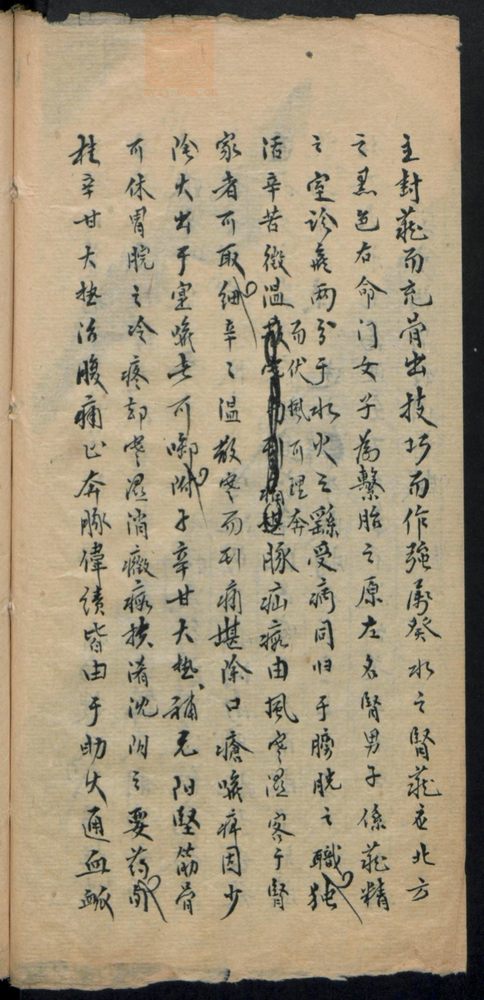 主封藏而充骨出技巧而作強屬癸水之腎藏在北方
之黑色右命门女子為繫胎之原左名腎男子係藏精
之室診疾两分于水火之繇受病同归于膀胱之職独
活辛苦微温而伏風可理奔豚疝瘕由風寒湿客于腎
家者可取细辛〻温散寒而痛堪除口瘡喉痹因少
陰火出于室此可啣附子辛甘大热補元阳坚筋骨
可休胃脘之冷疼却寒湿消癥瘕扶沈阴之要药肉
桂辛甘大热治腹痛止奔豚偉績皆由于助火通血脉